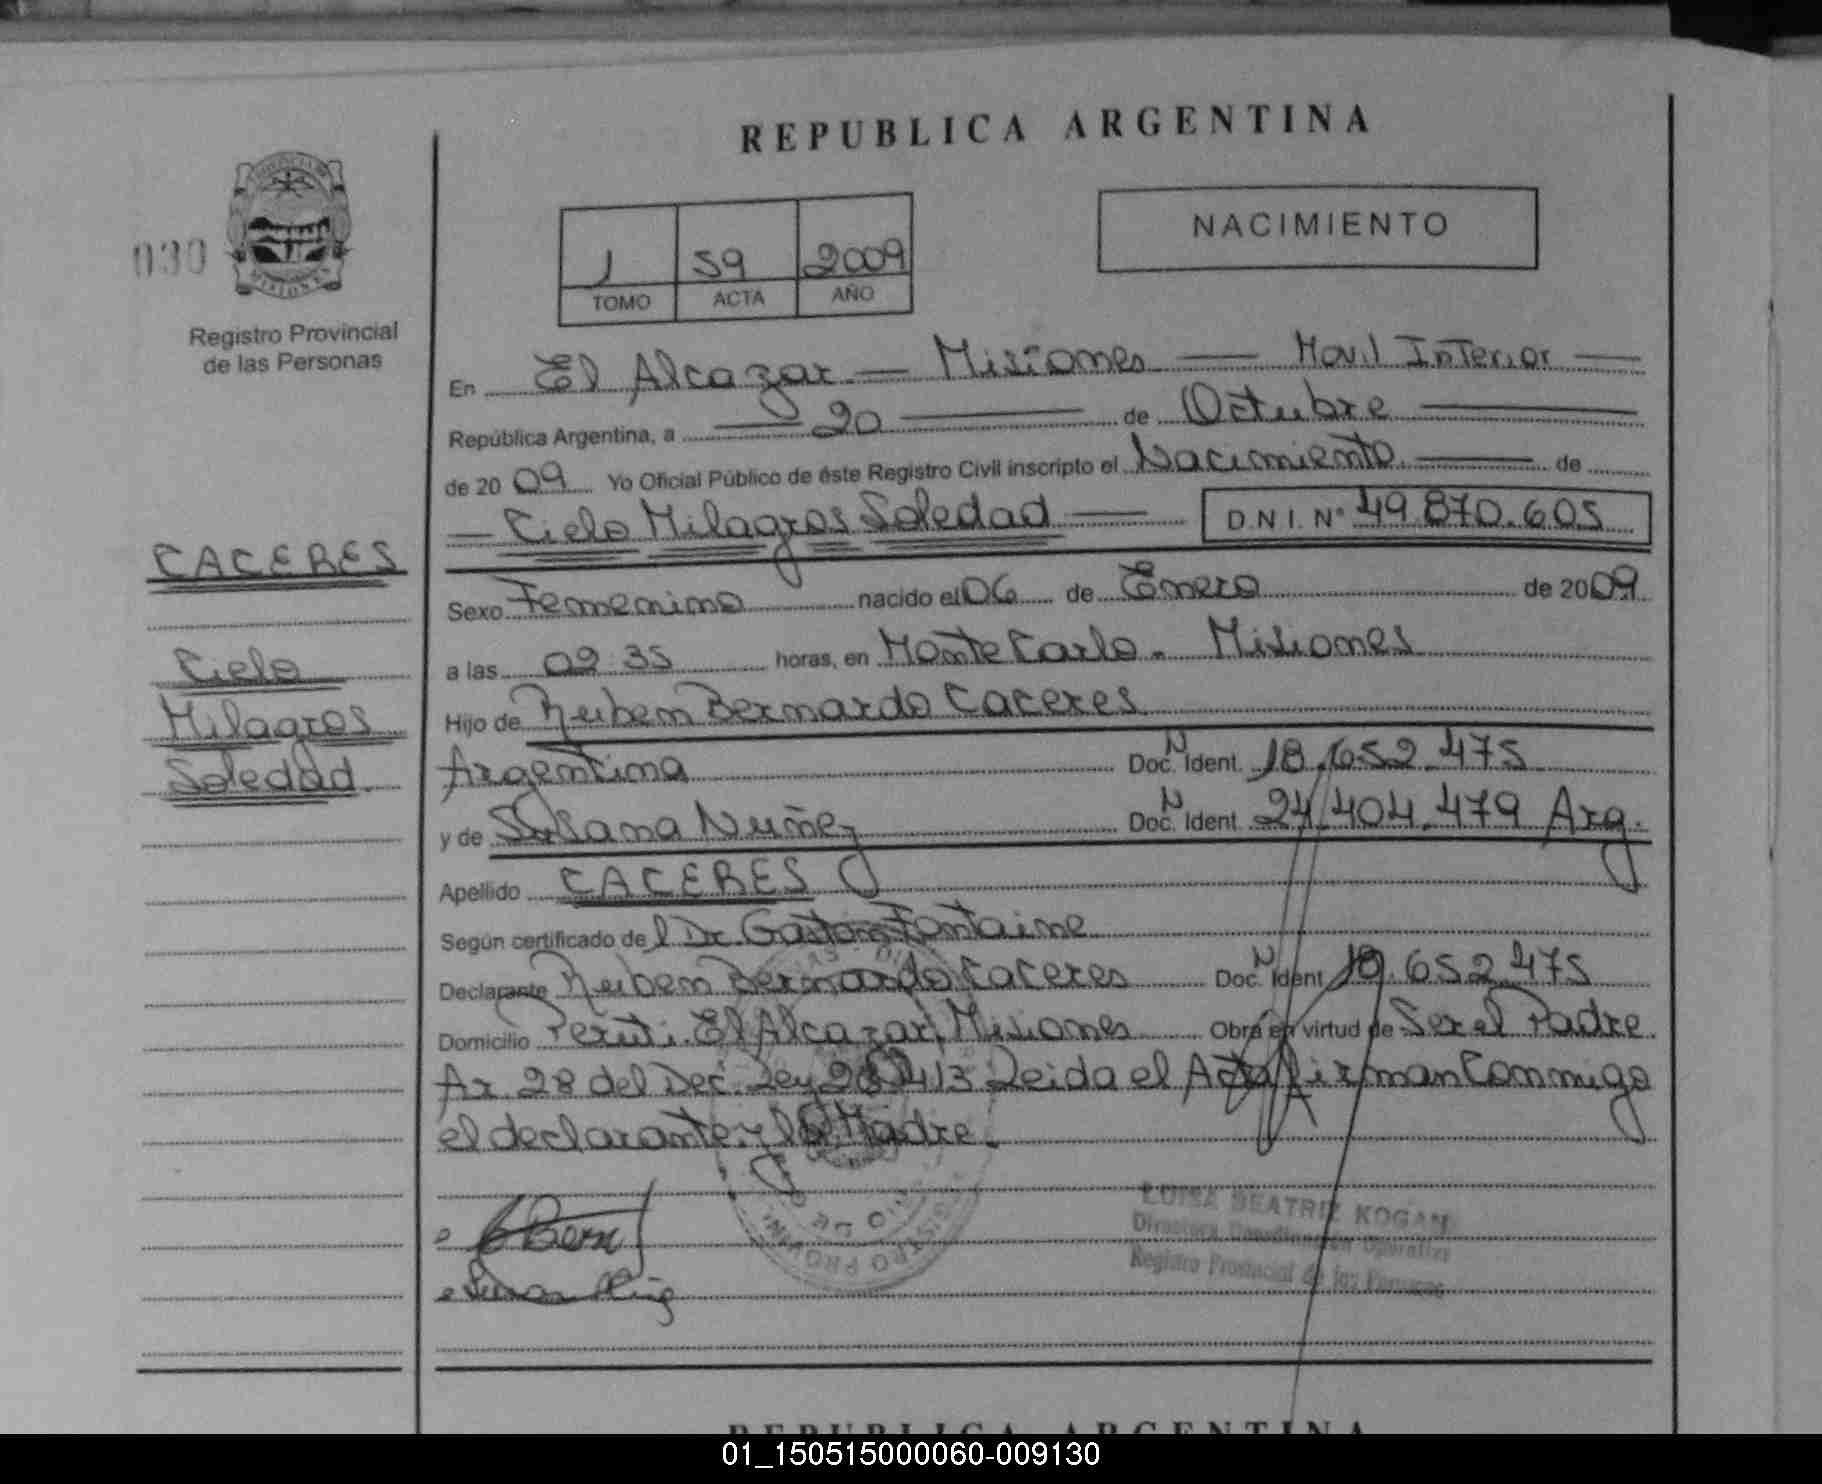 REPUBLICA ARGENTINA
030
Registro Provincial
de las Personas
1 59 2009
TOMO ACTA AÑO
NACIMIENTO
En El Alcazar — Misiones — Movil Interior —
República Argentina, a — 20 — de Octubre —
de 20 09 Yo Oficial Público de éste Registro Civil inscripto el Nacimiento — de
— Cielo Milagros Soledad — D.N.I. Nº 49.870.605
CACERES
Cielo
Milagros
Soledad
Sexo Femenino nacido el 06 de Enero de 2009
a las 09:35 horas, en Monte Carlo - Misiones
Hijo de Ruben Bernardo Caceres
Argentina Doc. N Ident. 18.652.475
y de Susana Nuñez Doc. N Ident. 24.404.479 Arg.
Apellido CACERES
Según certificado de l Dr. Gaston Fontaine
Declarante Ruben Bernardo Caceres Doc. N Ident. 18.652.475
Domicilio Peruti. El Alcazar, Misiones Obra en virtud de Ser el Padre
Ar. 28 del Dec. Ley Leida el Acta firman Conmigo
el declarante y la Madre.
LUISA BEATRIZ KOGAN
Directora Coordinación Operativa
Registro Provincial de las Personas
REPUBLICA ARGENTINA
01_150515000060-009130